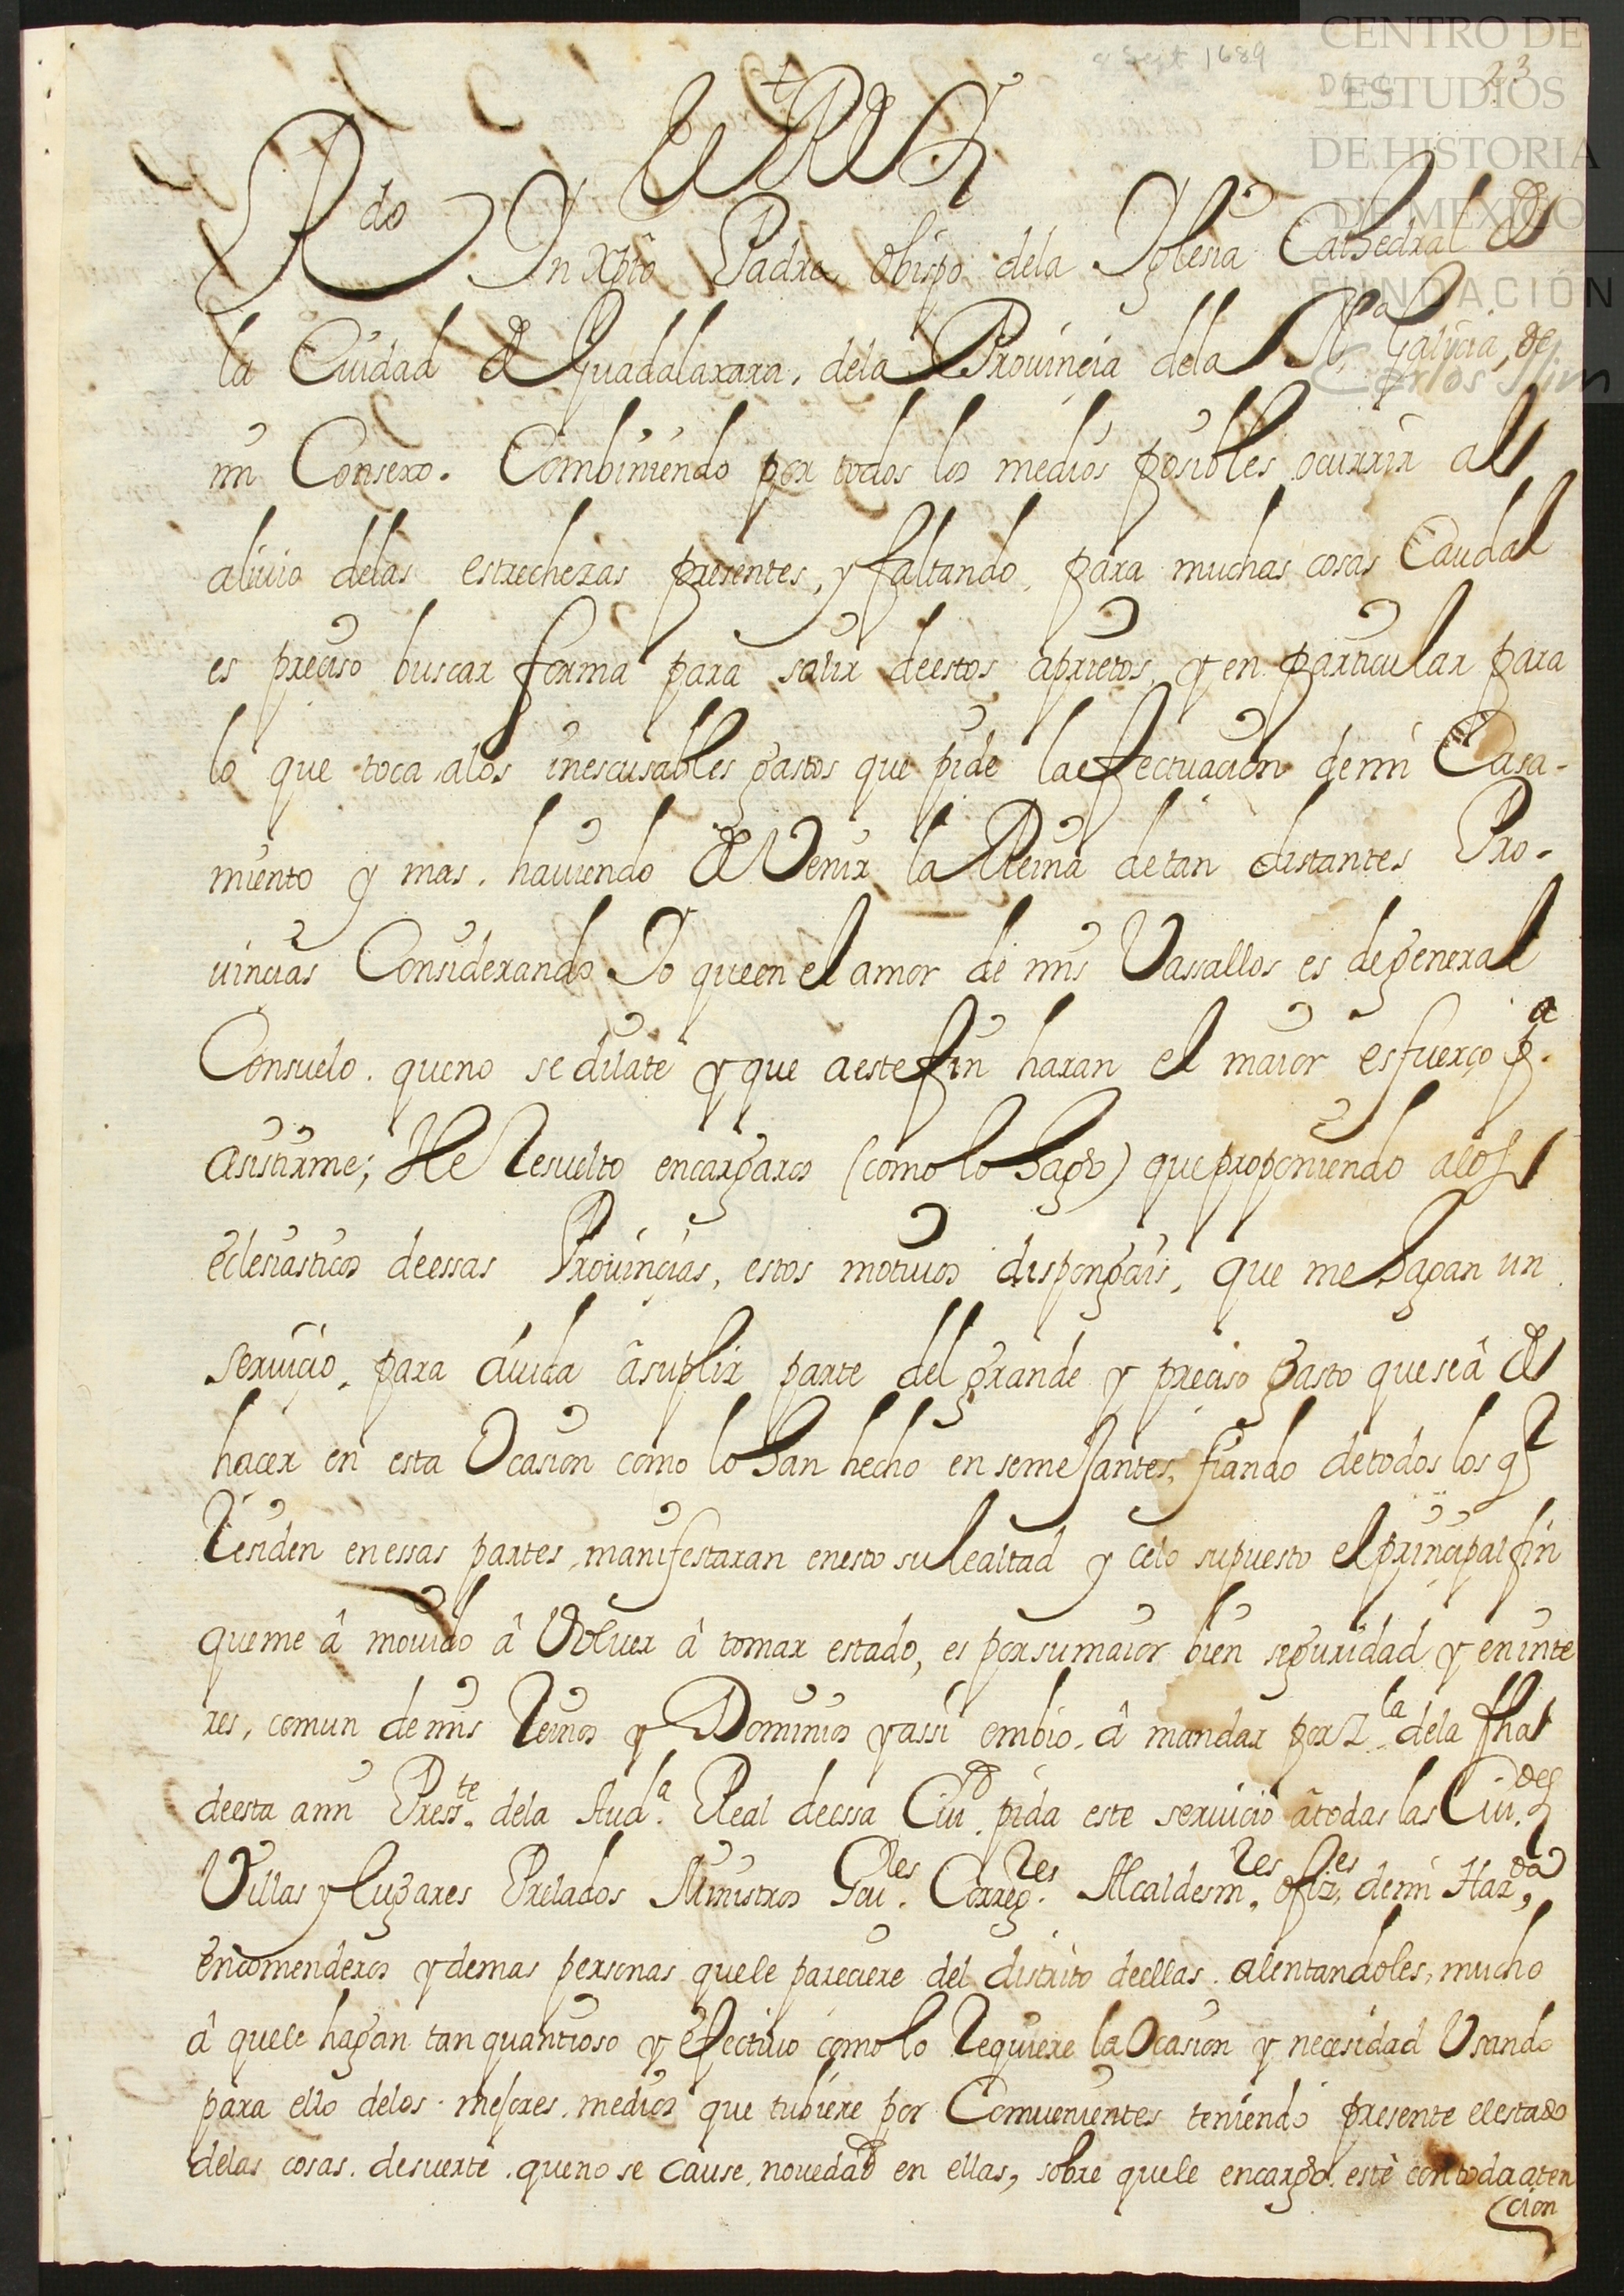 a Sept 1689
23
CENTRO DE
ESTUDIOS
DE HISTORIA
DE MEXICO
FUNDACIÓN
Carlos Slim
El Rey
Rdo In Xpto Padre, obispo dela Yglesia Cathedral de
la Ciudad de Guadalaxara, dela Prouincia dela Na Galicia, de
mi Consexo. Combiniendo por todos los medios posibles ocurrir al
aliuio delas estrechezas presentes, y faltando, para muchas cosas Caudal
es preciso buscar forma para salir deestos aprietos, y en particular para
lo que toca alos inescusables gastos que pide la efectuacion demi Casa-
miento y mas. hauiendo de Venir la Reina detan distantes Pro-
uincias Considerando Yo queen el amor de mis Vassallos es degeneral
Consuelo. queno se dilate y que aeste fin haran el maior esfuerço pa.
asistirme; He Resuelto encargaros (como lo hago) que proponiendo alos
eclesiasticos deessas Prouincias, estos motiuos dispongais, que me hagan un
seruicio, para aiuda âsuplir parte del grande y preciso gasto que seâ de
hacer en esta Ocasion como lo han hecho en semejantes, fiando detodos los q
Residen enessas partes, manifestaran enesto su lealtad y celo supuesto el principal fin
queme â mouido â Voluer â tomar estado, es por su maior bien seguridad y en inte
res, comun de mis Reinos y Dominios y assi embio, â mandar por Zla. dela fha
deesta ami Presste. dela Auda. Real deessa Ciud. pida este seruicio âtodas las Ciudes.
Villas y lugares Prelados Ministros Goures. Corregres. Alcaldesmres. ofizes. demi Hazda,
encomenderos y demas personas quele pareciere del distrito deellas. alentandoles, mucho
â quele hagan tan quantioso y efectiuo como lo Requiere la Ocasion y necesidad Vsando
para ello delos mejores, medios que tubiere por Conuenientes teniendo presente elestado
delas cosas. desuerte. queno se cause, nouedad en ellas, sobre quele encargo. estè con toda aten
cion